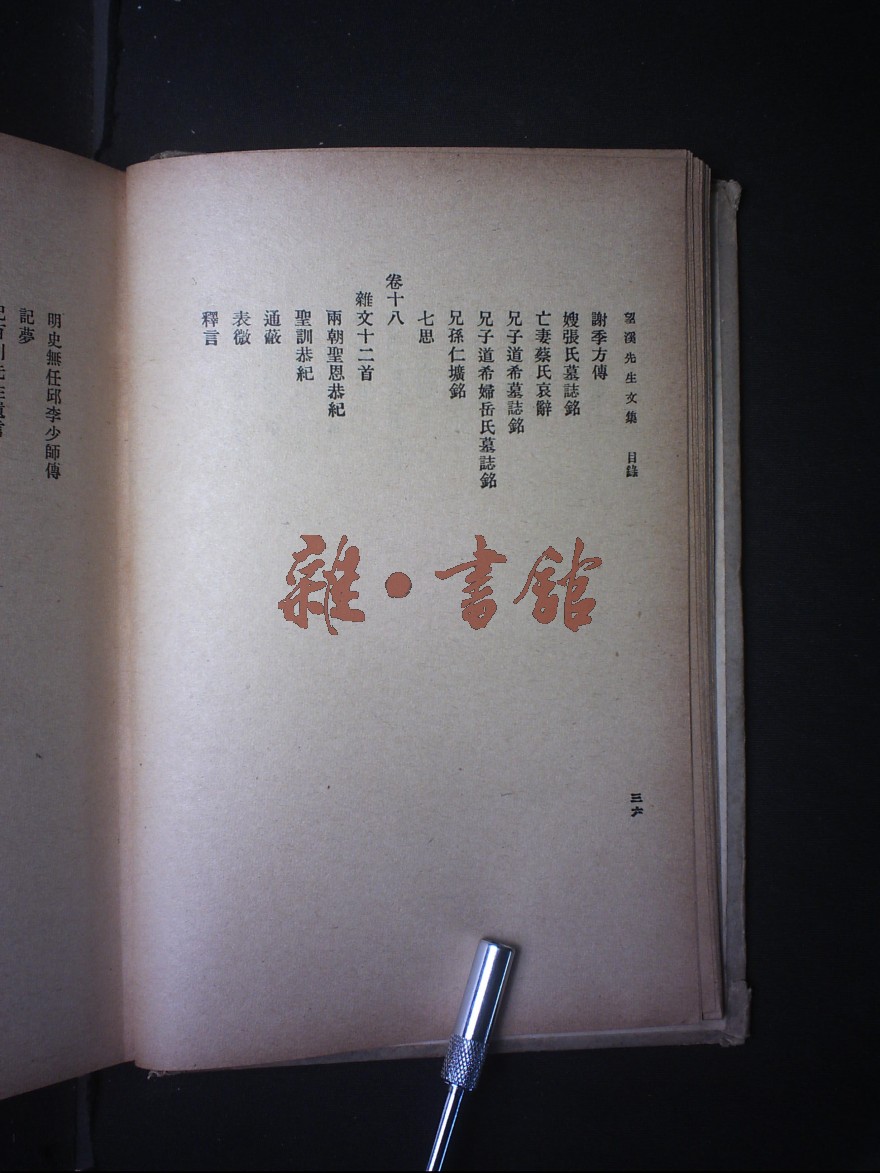 望溪先生文集 目錄
三六
謝季方傳
嫂張氏墓誌銘
亡妻蔡氏哀辭
兄子道希墓誌銘
兄子道希婦岳氏墓誌銘
兄孫仁壙銘
七思
卷十八
雜文十二首
兩朝聖恩恭紀
聖訓恭紀
通蔽
表微
釋言
明史無任邱李少師傳
記夢
雜·書館